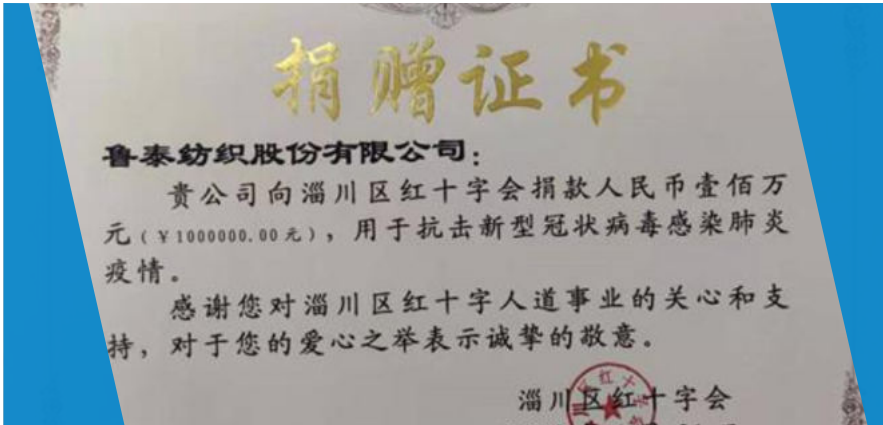 捐赠证书
鲁泰纺织股份有限公司：
贵公司向淄川区红十字会捐款人民币壹佰万
元（￥1000000.00元），用于抗击新型冠状病毒感染肺炎
疫情。
感谢您对淄川区红十字人道事业的关心和支
持，对于您的爱心之举表示诚挚的敬意。
淄川区红十字会